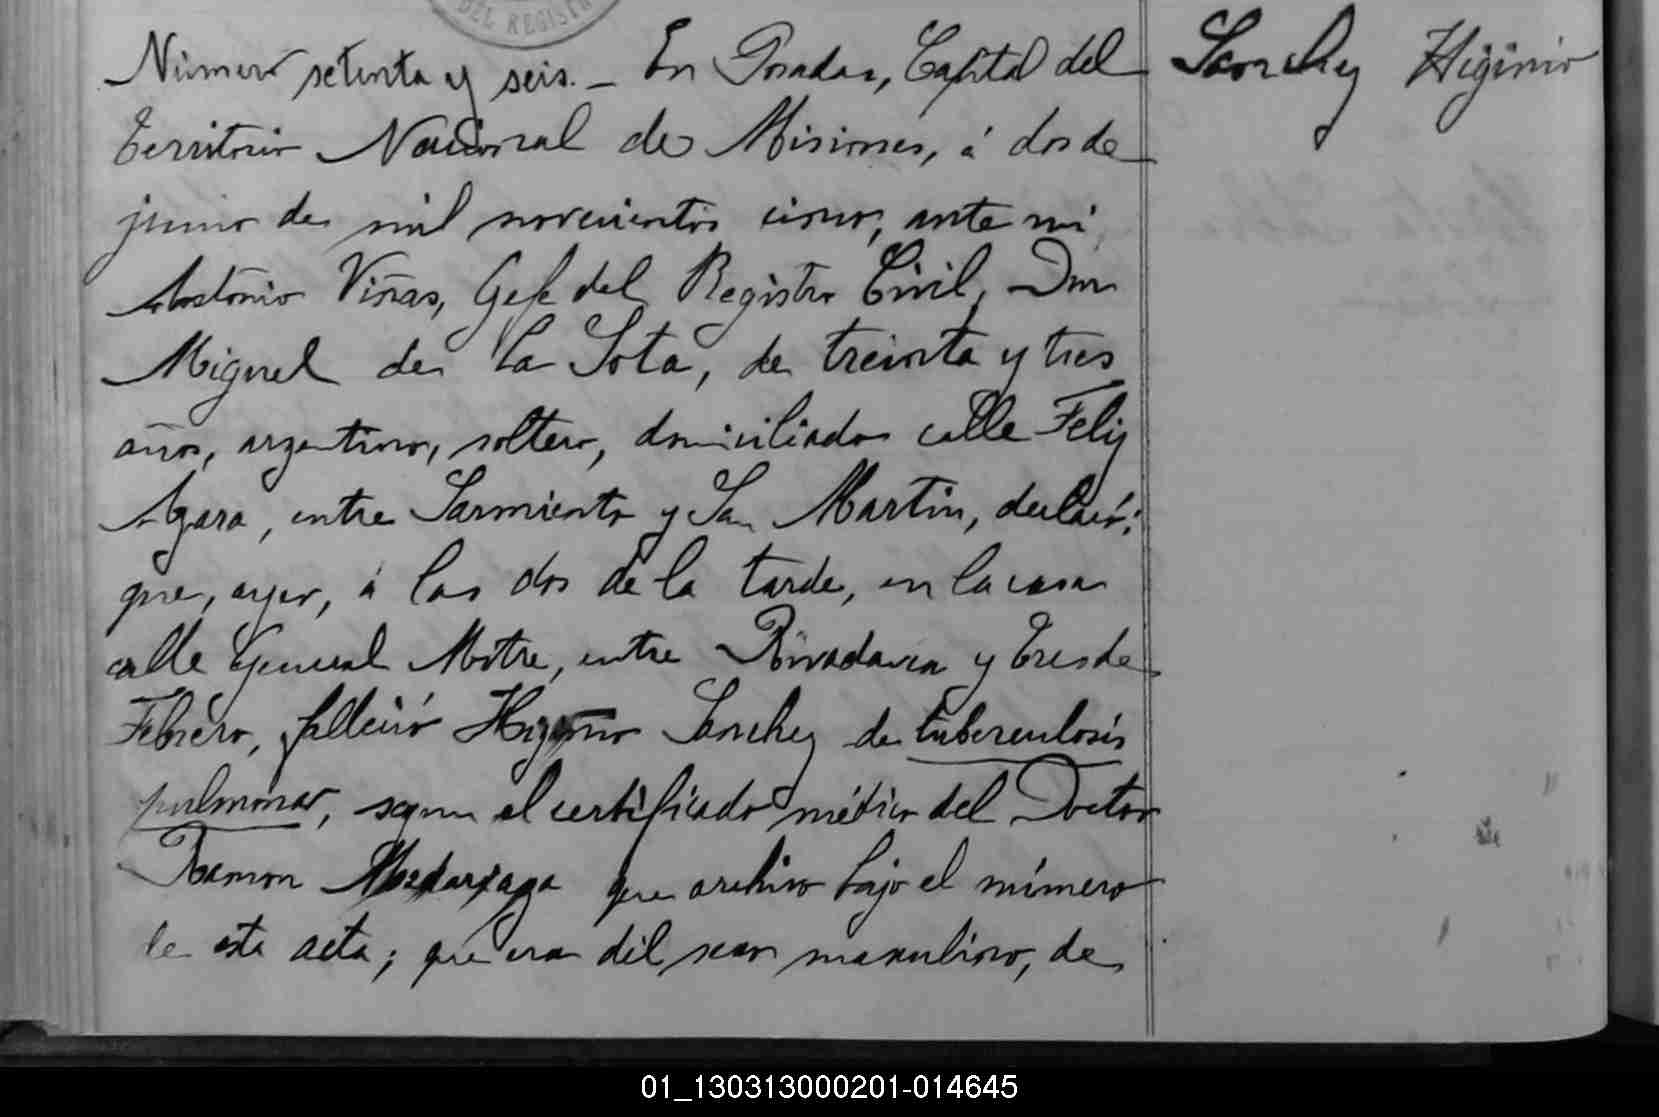 DEL REGIST
Número setenta y seis. - En Posadas, Capital del
Sanchez Higinio
Territorio Nacional de Misiones, á dos de
junio de mil novecientos cinco, ante mi
Antonio Viñas, Gefe del Registro Civil, Don
Miguel de la Sota, de treinta y tres
años, argentino, soltero, domiciliado calle Felix
Azara, entre Sarmiento y San Martin, declaró:
que, ayer, á las dos de la tarde, en la casa
calle General Mitre, entre Rivadavia y Tres de
Febrero, falleció Higinio Sanchez de tuberculosis
pulmonar, segun el certificado médico del Doctor
Ramon Madariaga que archivo bajo el número
de esta acta; que era del sexo masculino, de
01_130313000201-014645